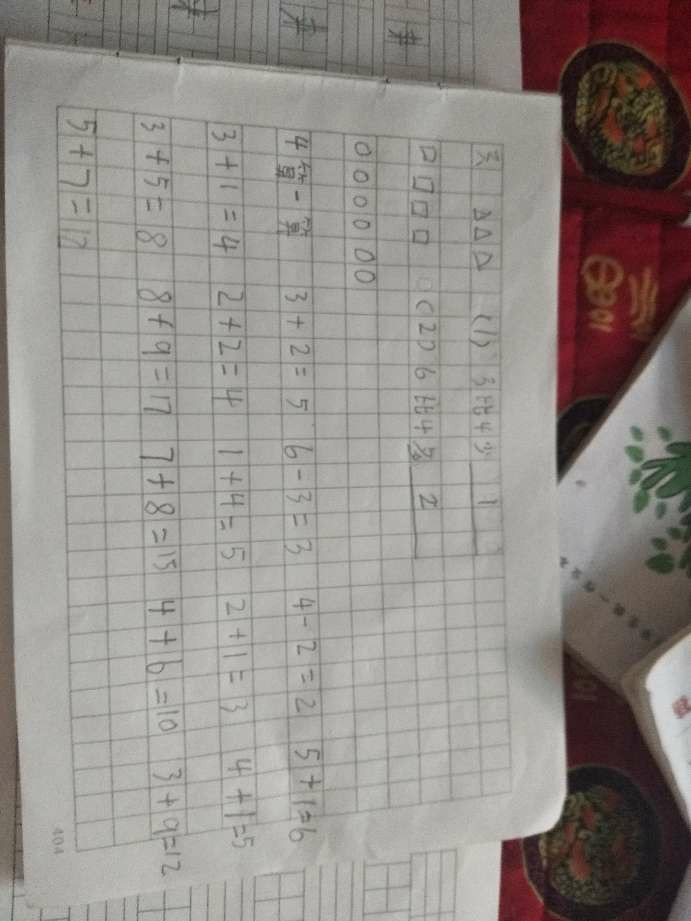 3. △△△ (1) 3比4少 1
□□□□ (2) 6比4多 2
000000
4算一算 3+2=5 6-3=3 4-2=2 5+1=6
3+1=4 2+2=4 1+4=5 2+1=3 4+1=5
3+5=8 8+9=17 7+8=15 4+6=10 3+9=12
5+7=12
404